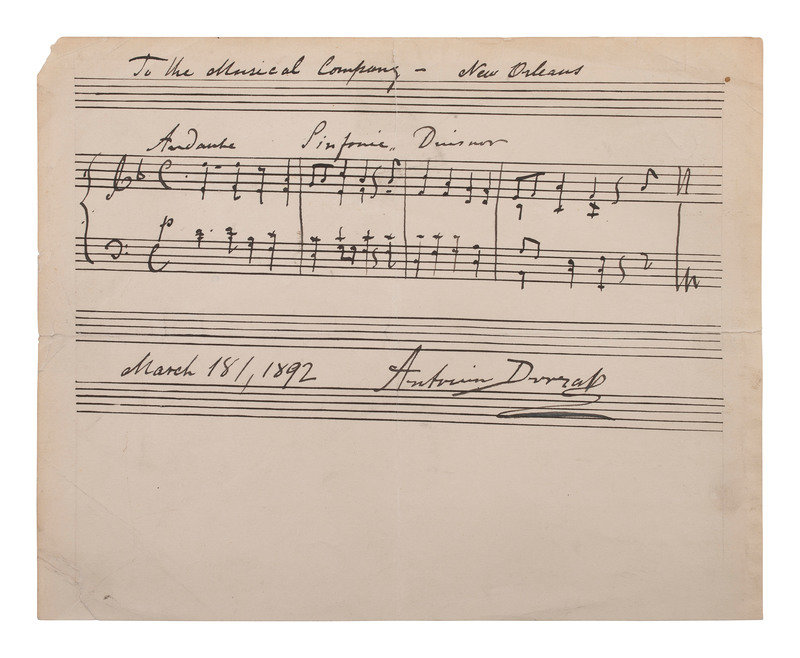 To the Musical Company – New Orleans
Andante Sinfonie
p
March 18/, 1892 Antonin Dvorak